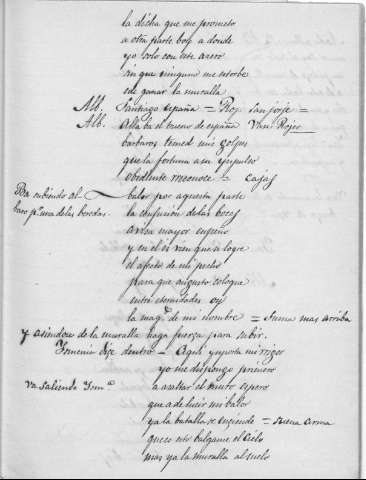 la dicha que me prometo
a otra parte boy a donde
yo solo con este acero
sin que ninguno me estorbe
e de ganar la muralla
Alb. Santiago españa = Roj. san jorje =
Alb. Alla ba el bueno de españa Van Rojer
barbaros temed mis golpes
que la fortuna a su ynpulso
obediente me conoce - cajas
Ban subiendo al balor por aquesta parte
la confusion de las boces
a vien mayor enpeño
y en el es vien que se logre
el afecto de mi pecho
para que augusto coloque
entre eternidades oy
la mag.d de mi nombre = suena mas arriba
y asiendose de la muralla haga fuerza para subir.
Ismenia dize dentro - Aqui ynporta mi rigor
yo me dispongo primero
va saliendo Ism.a a asaltar el muro espero
que a de lucir mi balor
ya la batalla se enciende = suena arma
que es esto balgame el cielo
mas ya la muralla al suelo